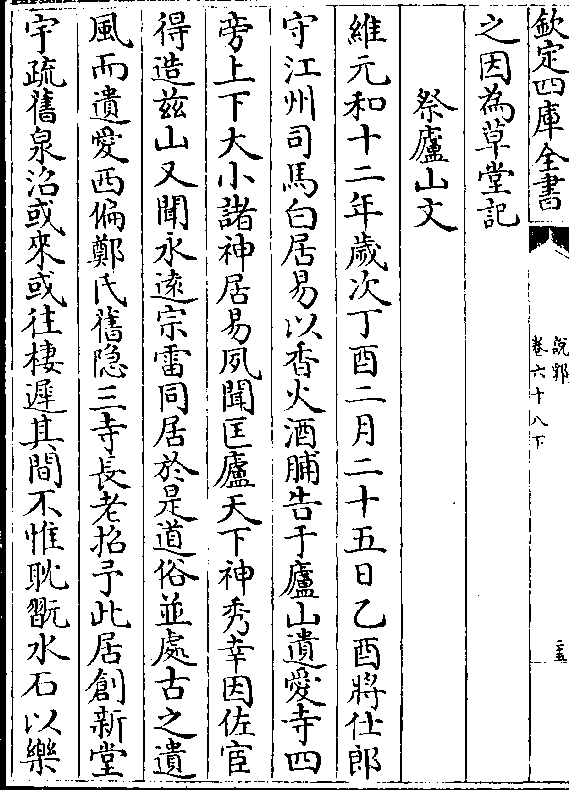 欽定四庫全書
說郛
卷六十八下
二五
之因為草堂記
祭廬山文
維元和十二年歲次丁酉二月二十五日乙酉將仕郎
守江州司馬白居易以香火酒脯告于廬山遺愛寺四
旁上下大小諸神居易夙聞匡廬天下神秀幸因佐宦
得造兹山又聞永遠宗雷同居於是道俗並處古之遺
風而遺愛西偏鄭氏舊隐三寺長老招予此居創新堂
宇疏舊泉沼或來或往棲遲其間不惟耽翫水石以樂